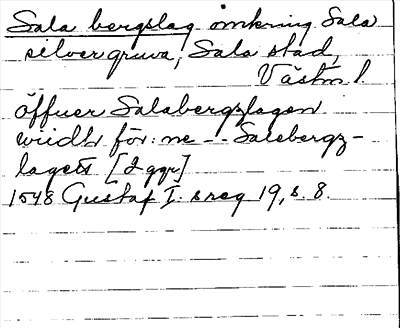 Sala bergslag omkring Sala
silvergruva, Sala stad,
Västm l.
öffuer Salabergzlagen
widh för:ne - Salebergz-
lagett [2 ggr]
1548 Gustaf I:s reg 19, s. 8.